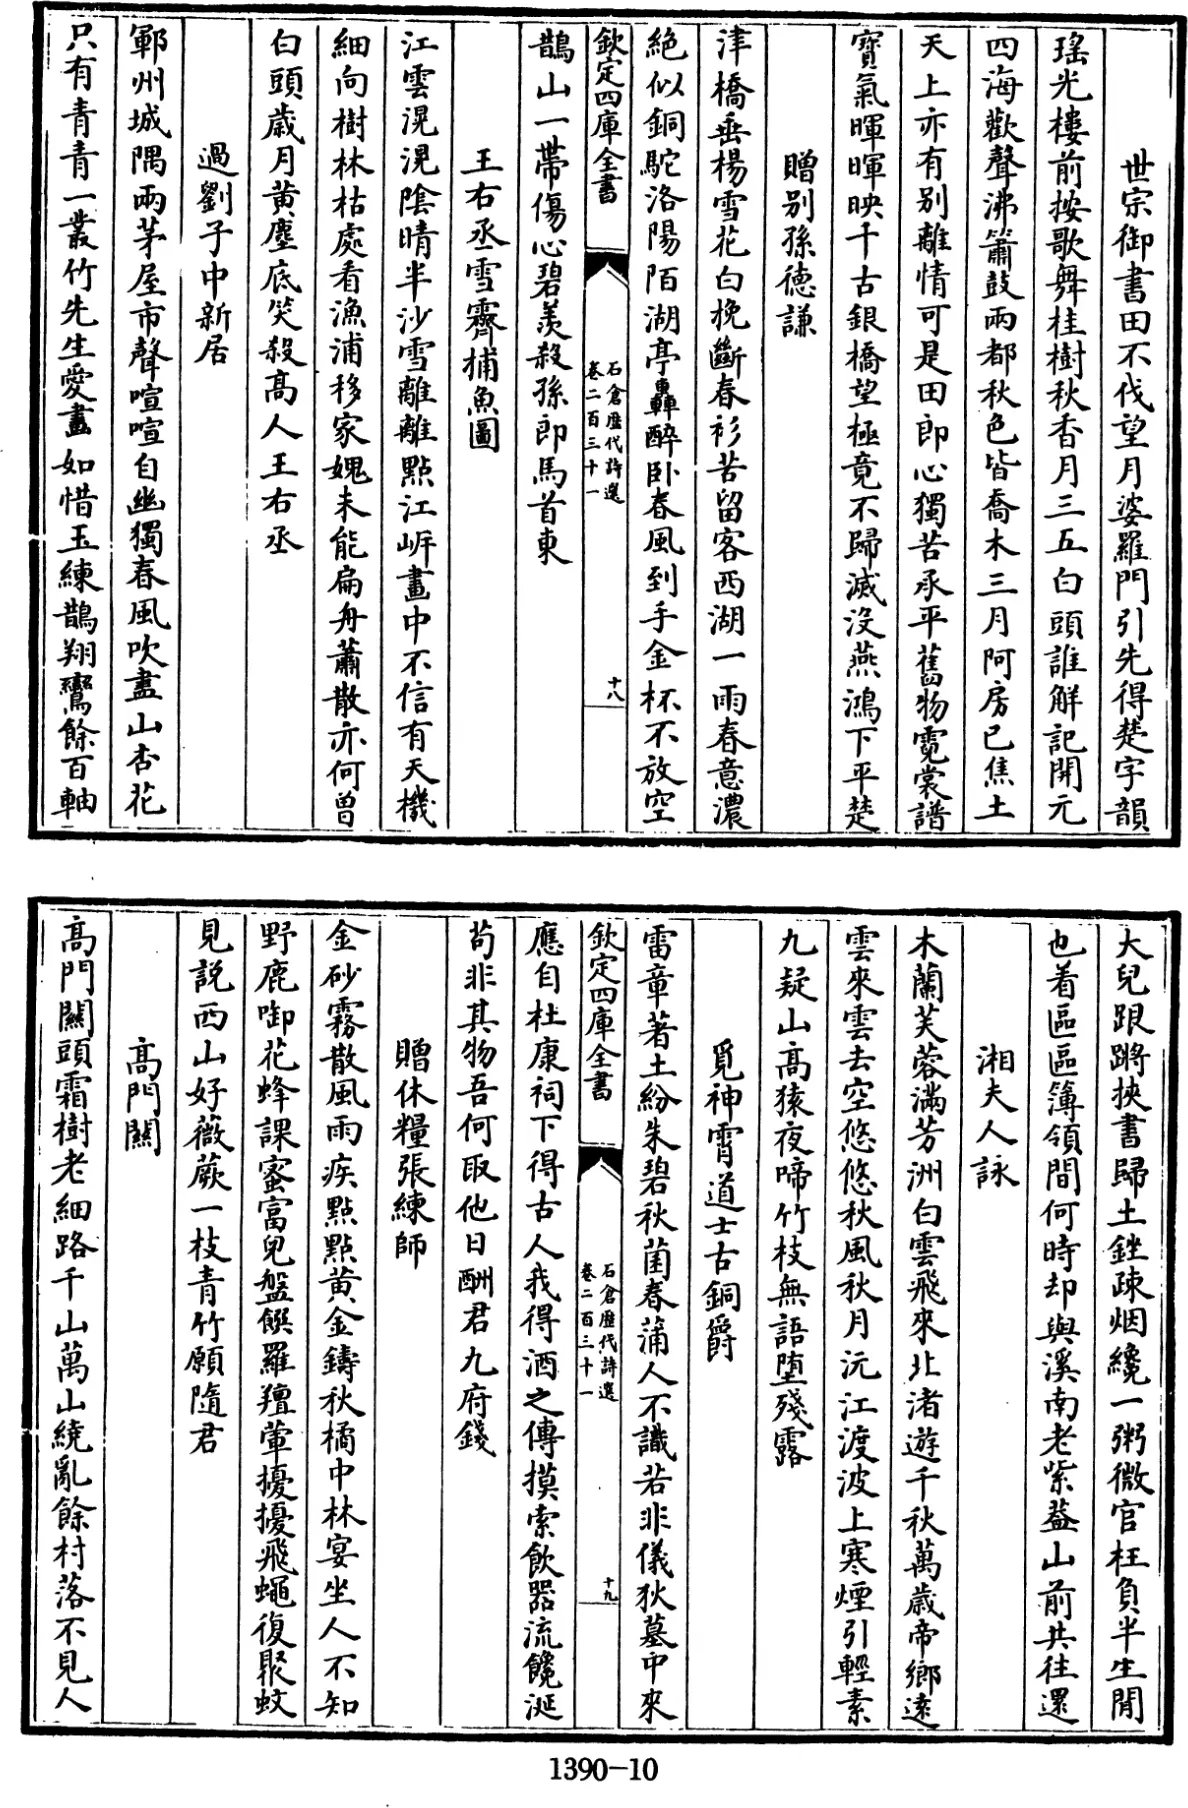 世宗御書田不伐望月婆羅門引先得楚字韻
瑤光樓前按歌舞桂樹秋香月三五白頭誰解記開元
四海歡聲沸簫鼓兩都秋色皆喬木三月阿房已焦土
天上亦有別離情可是田郎心獨苦承平舊物霓裳譜
寶氣暉暉映千古銀橋望極竟不歸滅沒燕鴻下平楚
贈別孫德謙
津橋垂楊雪花白挽斷春衫苦留客西湖一雨春意濃
絶似銅駝洛陽陌湖亭轟醉卧春風到手金杯不放空
欽定四庫全書
石倉歷代詩選
卷二百三十一
十八
鵲山一帶傷心碧羨殺孫郎馬首東
王右丞雪霽捕魚圖
江雲滉滉陰晴半沙雪離離點江岸畫中不信有天機
細向樹林枯處看漁浦移家媿未能扁舟蕭散亦何曾
白頭歲月黄塵底笑殺高人王右丞
過劉子中新居
鄆州城隅兩茅屋市聲喧喧自幽獨春風吹盡山杏花
只有青青一叢竹先生愛畫如惜玉練鵲翔鸞餘百軸
大兒踉蹡挾書歸土銼疎烟纔一粥微官枉負半生閒
也着區區簿領間何時却與溪南老紫蓋山前共往還
湘夫人詠
木蘭芙蓉滿芳洲白雲飛來北渚遊千秋萬歳帝鄉遠
雲來雲去空悠悠秋風秋月沅江渡波上寒煙引輕素
九疑山高猿夜啼竹枝無語墮殘露
覓神霄道士古銅爵
雷章著土紛朱碧秋菌春蒲人不識若非儀狄墓中來
欽定四庫全書
石倉歷代詩選
卷二百三十一
十九
應自杜康祠下得古人我得酒之傳摸索飲器流饞涎
茍非其物吾何取他日酬君九府錢
贈休糧張練師
金砂霧散風雨疾點點黄金鑄秋橘中林宴坐人不知
野鹿啣花蜂課蜜富兒盤饌羅羶葷擾擾飛蠅復聚蚊
見説西山好薇蕨一枝青竹願隨君
高門關
高門關頭霜樹老細路千山萬山繞亂餘村落不見人
1390-10